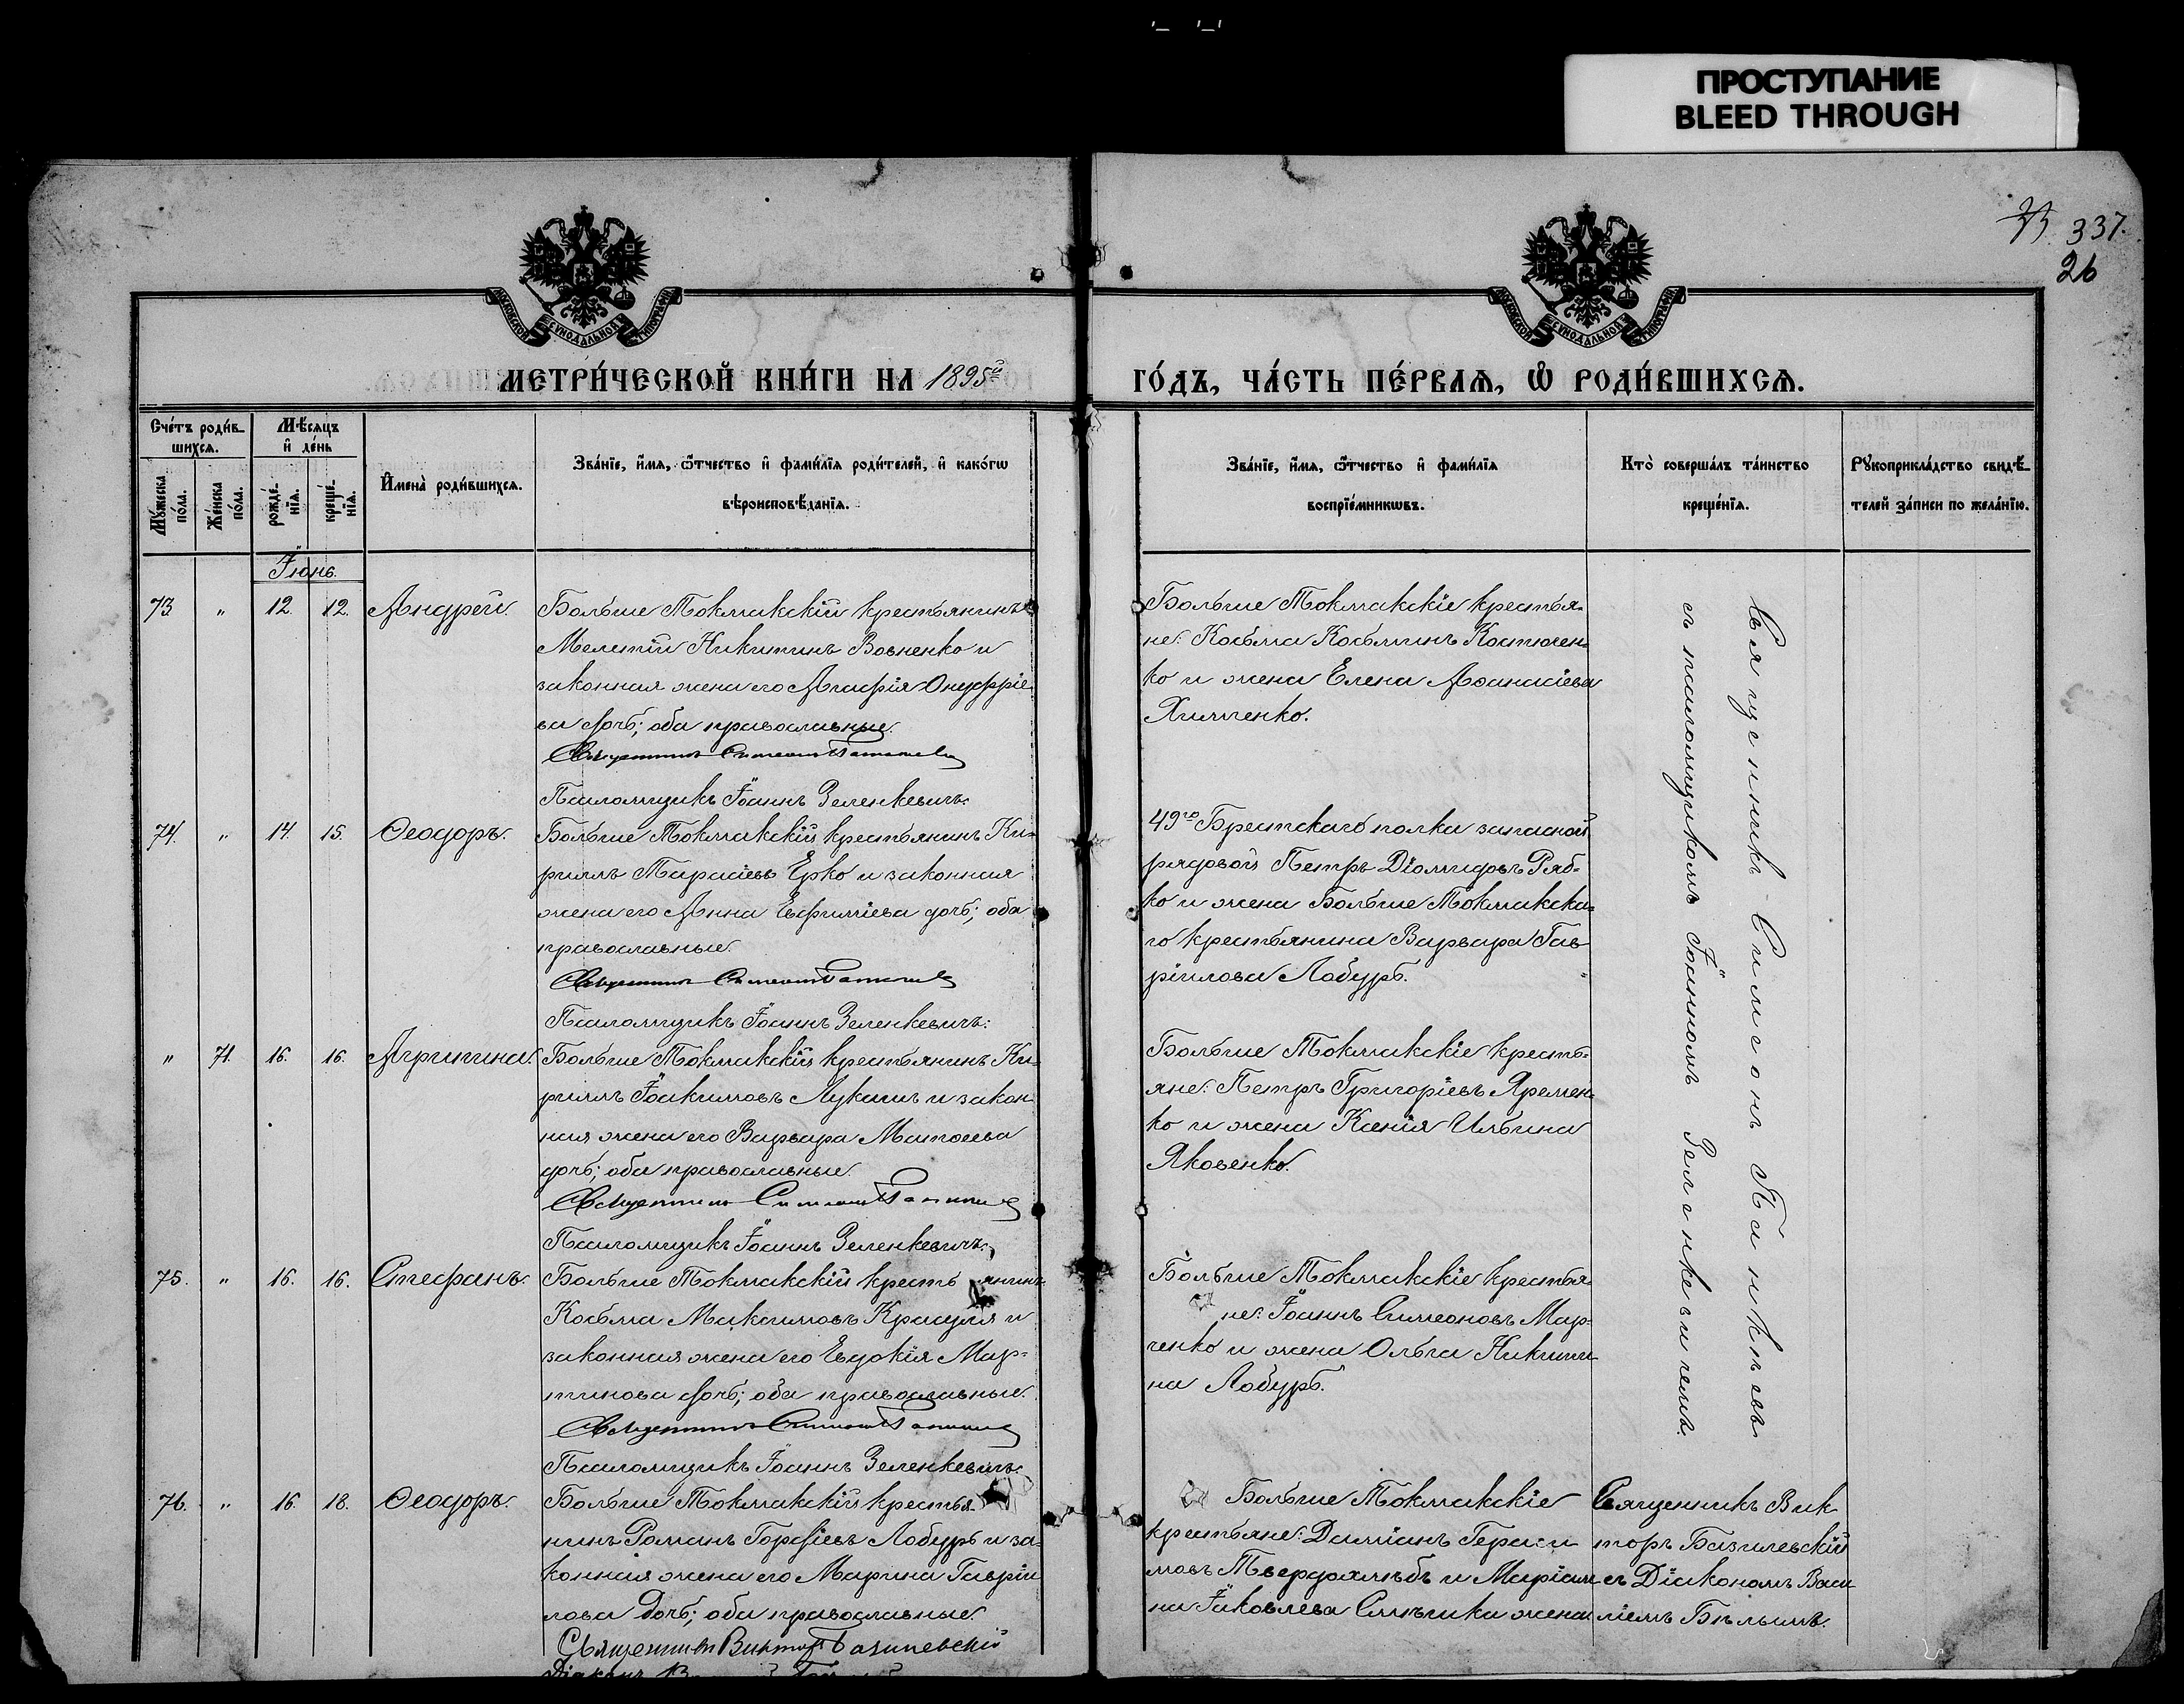 ПРОСТУПАНИЕ
BLEED THROUGH
337.
26
МОСКОВСКОЙ СѴНОДАЛЬНОЙ ТИПОГРАФІИ
МОСКОВСКОЙ СѴНОДАЛЬНОЙ ТИПОГРАФІИ
МЕТРИ́ЧЕСКОЙ КНИ́ГИ НА 1895й
ГО́ДЪ, ЧА́СТЬ ПЕ́РВАѦ, Ѡ҆ РОДИ́ВШИХСѦ.
Сче́тъ роди́в-
шихсѧ.
Му́жеска по́ла.
Же́нска по́ла.
Мѣ́сяцъ
и҆ де́нь
рожде́-
нїѧ.
креще́-
нїѧ.
И҆мена̀ роди́вшихсѧ.
Зва́нїе, и҆́мѧ, ѻ҆́тчество и҆ фами́лїѧ роди́телей, и҆ како́гѡ
вѣроисповѣ́данїѧ.
Зва́нїе, и҆́мѧ, ѻ҆́тчество и҆ фами́лїѧ
воспрїе́мникѡвъ.
Кто̀ соверша́лъ та́инство
креще́нїѧ.
Рꙋкоприкла́дство свидѣ́-
телей за́писи по жела́нїю.
Іюнь.
73 " 12. 12. Андрей.
Больше Токмакскій крестьянинъ
Мелетій Никитинъ Вовненко и
законная жена его Агафія Онуфріе
ва дочь; оба православные.
Священникъ Симеонъ
Псаломщикъ Іоаннъ Зеленкевичъ.
Больше Токмакскіе крестья-
не: Косьма Косьминъ Костючен-
ко и жена Елена Аѳанасіева
Химченко.
74. " 14. 15. Ѳеодоръ.
Больше Токмакскій крестьянинъ Ки-
риллъ Тарасіевъ Ерко и законная
жена его Анна Евфиміева дочь; оба
православные.
Священникъ Симеонъ
Псаломщикъ Іоаннъ Зеленкевичъ:
49го Брестскаго полка запасной
рядовой Петръ Діомидовъ Ряб-
ко и жена Больше Токмакска-
го крестьянина Варвара Гав
ріилова Лобуръ.
" 71. 16. 16. Агрипина.
Больше Токмакскій крестьянинъ Ки-
риллъ Іоакимовъ Лукашъ и закон
ная жена его Варвара Матѳеева
дочь; оба православные.
Священникъ Симеонъ
Псаломщикъ Іоаннъ Зеленкевичъ.
Больше Токмакскіе кресть-
яне: Петръ Григоріевъ Яремен-
ко и жена Ксенія Ильина
Яковенко.
75. " 16. 16. Стефанъ.
Больше Токмакскій кресть янинъ
Косьма Максимовъ Красуля и
законная жена его Евдокія Мар-
тинова дочь; оба православные.
Священникъ Симеонъ
Псаломщикъ Іоаннъ Зеленкевичъ.
Больше Токмакскіе крестья
не: Іоаннъ Симеоновъ Мар-
ченко и жена Ольга Никити
на Лобуръ.
Священникъ Симеонъ
съ псаломщикомъ Іоанномъ Зеленкевичемъ.
76. " 16. 18. Ѳеодоръ.
Больше Токмакскій крестья
нинъ Романъ Гордіевъ Лобуръ и за-
конная жена его Марина Гавріи
лова дочь; оба православные.
Священникъ Викторъ Базилевскій
Діаконъ
Больше Токмакскіе
крестьяне: Даміанъ Гераси
мовъ Твердохлѣбъ и Маріам
на Іаковлева жена
Священникъ Вик
торъ Базилевскій
съ Діакономъ Васи
ліемъ Бѣлымъ.